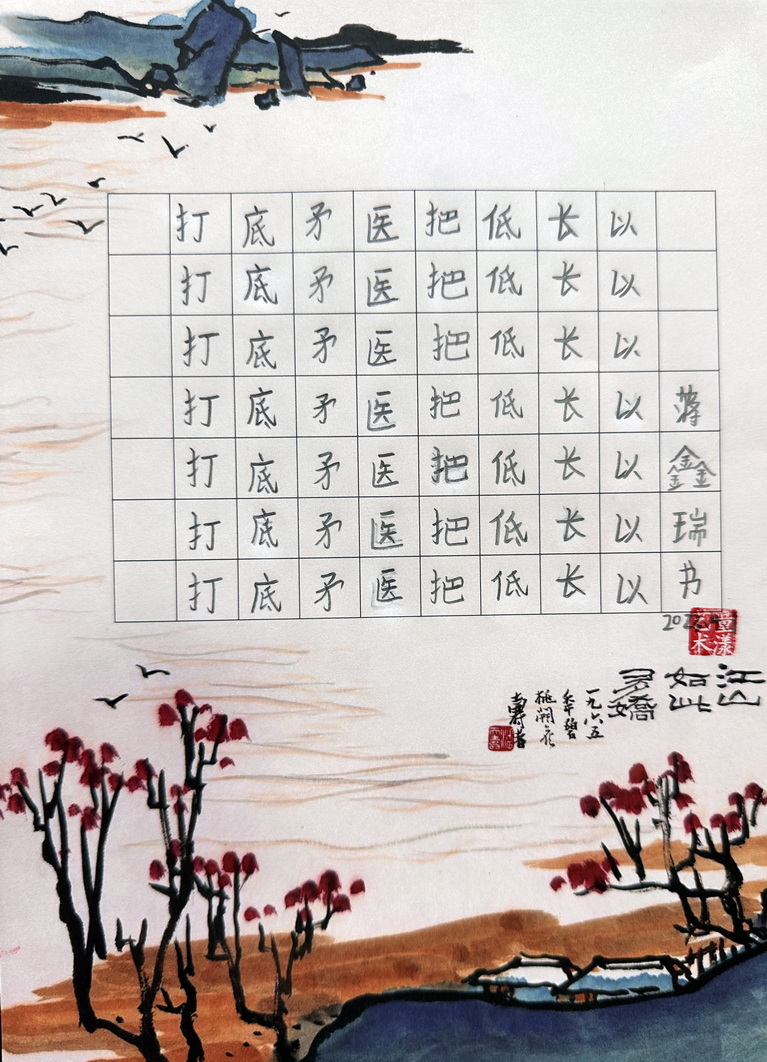 打 底 矛 医 把 低 长 以
打 底 矛 医 把 低 长 以
打 底 矛 医 把 低 长 以
打 底 矛 医 把 低 长 以 薄
打 底 矛 医 把 低 长 以 鑫
打 底 矛 医 把 低 长 以 瑞
打 底 矛 医 把 低 长 以 书
童漾艺术
江山
如此
多娇
一九六五